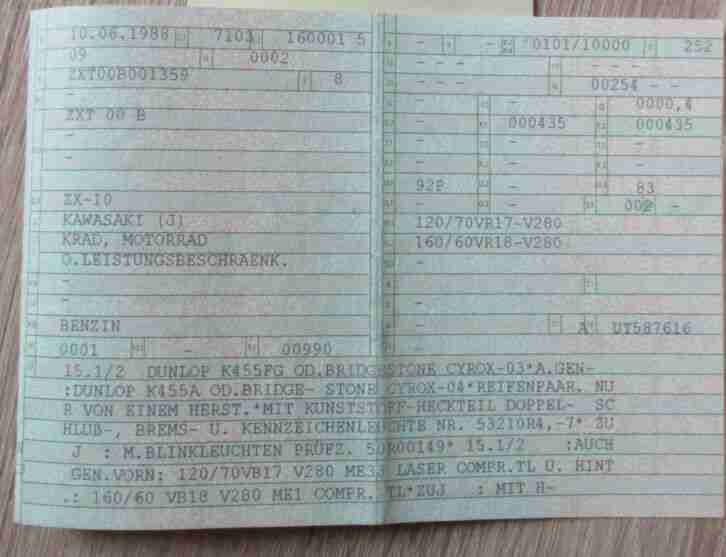 10.06.1988 7103 160001 5
09 0002
ZXT00B001359 8
-
ZXT 00 B
-
-
ZX-10
KAWASAKI (J)
KRAD, MOTORRAD
O.LEISTUNGSBESCHRAENK.
-
-
BENZIN
0001 - 00990
- - 0101/10000 252
- - - - - -
- - - 00254 - -
- - 0000,4
- 000435 000435
- - -
- - -
92P - 83
- - 002 -
120/70VR17-V280
160/60VR18-V280
-
-
- A UT587616
-
15.1/2 DUNLOP K455FG OD.BRIDGESTONE CYROX-03*A.GEN-
:DUNLOP K455A OD.BRIDGE- STONE CYROX-04*REIFENPAAR. NU
R VON EINEM HERST.*MIT KUNSTSTOFF-HECKTEIL DOPPEL- SC
HLUß-, BREMS- U. KENNZEICHENLEUCHTE NR. 53210R4,-7* ZU
J : M.BLINKLEUCHTEN PRÜFZ. 50R00149* 15.1/2 :AUCH
GEN.VORN: 120/70VB17 V280 ME33 LASER COMPR.TL U. HINT
.: 160/60 VB18 V280 ME1 COMPR. TL*ZUJ : MIT H-